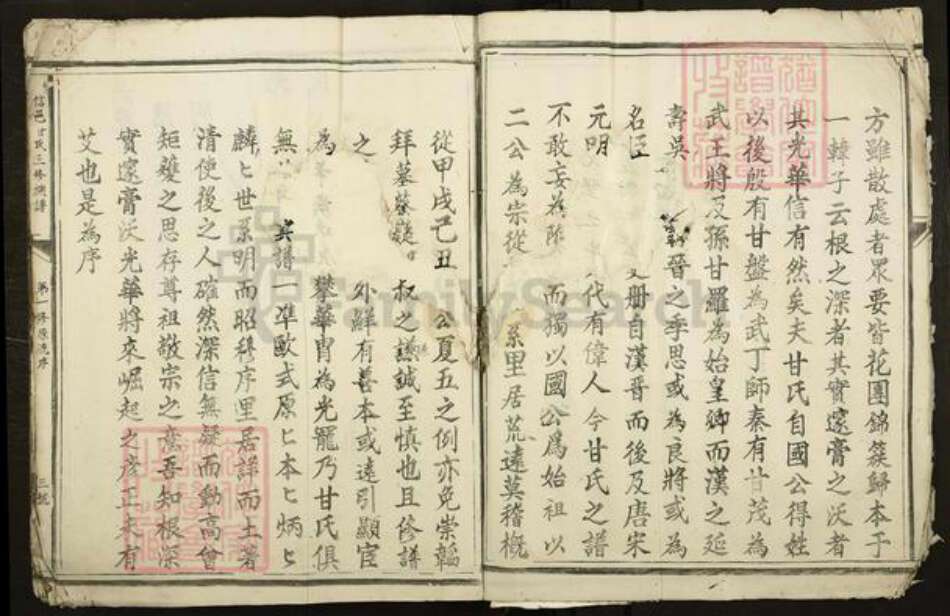 方雖散處者眾要皆花團錦簇歸本于
一韓子云根之深者其實邃膏之沃者
其光華信有然矣夫甘氏自國公得姓
以後殷有甘盤為武丁師秦有甘茂為
武王將及孫甘羅為始皇卿而漢之延
壽吳 晉之季思或為良將或為
名臣 册自漢晉而後及唐宋
元明 代有偉人今甘氏之譜
不敢妄為 而獨以國公為始祖以
二公為宗從 系里居荒遠莫稽概
從甲戌己丑 公夏五之例亦免崇韜
拜墓 叔之譏誠至慎也且修譜
之 外鮮有善本或遠引顯宦
為 攀華胄為光寵乃甘氏俱
無 其譜一準歐式原匕本匕炳匕
麟匕世系明而昭穆序里居詳而土著
清使後之人確然深信無疑而動高曾
矩蒦之思存尊祖敬宗之意吾知根深
實邃膏沃光華將來崛起之彥正未有
艾也是為序
信邑甘氏三修族譜
第一修原老序
三
FamilySearch